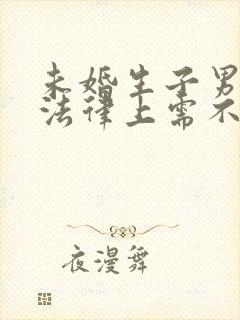 未婚生子男
法律上需不
夜漫舞